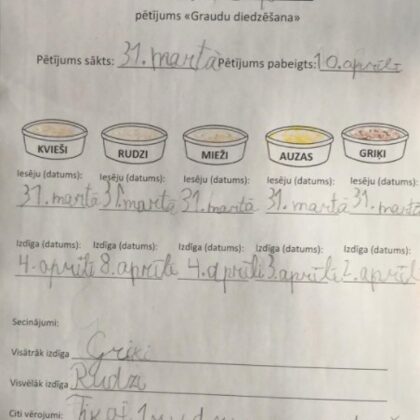 pētījums «Graudu diedzēšana»
Pētījums sākts: 31. martā Pētījums pabeigts: 10. aprīlī
KVIEŠI RUDZI MIEŽI AUZAS GRIĶI
Iesēju (datums): Iesēju (datums): Iesēju (datums): Iesēju (datums): Iesēju (datums):
31. martā 31. martā 31. martā 31. martā 31. martā
Izdīga (datums): Izdīga (datums): Izdīga (datums): Izdīga (datums): Izdīga (datums):
4. aprīlī 8. aprīlī 4. aprīlī 3. aprīlī 2. aprīlī
Secinājumi:
Visātrāk izdīga Griķi
Visvēlāk izdīga Rudzi
Citi vērojumi: Tikai 1